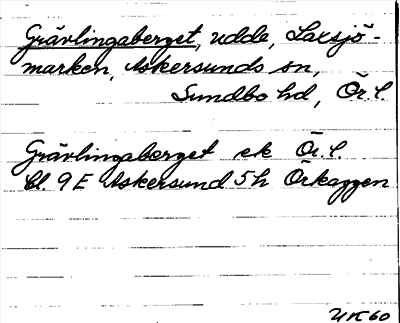 Grävlingaberget, udde, Laxsjö-
marken, Askersunds sn,
Sundbo hd, Ör.l.
Grävlingaberget ek Ör.l.
Bl. 9E Askersund 5h Örkaggen
UK60